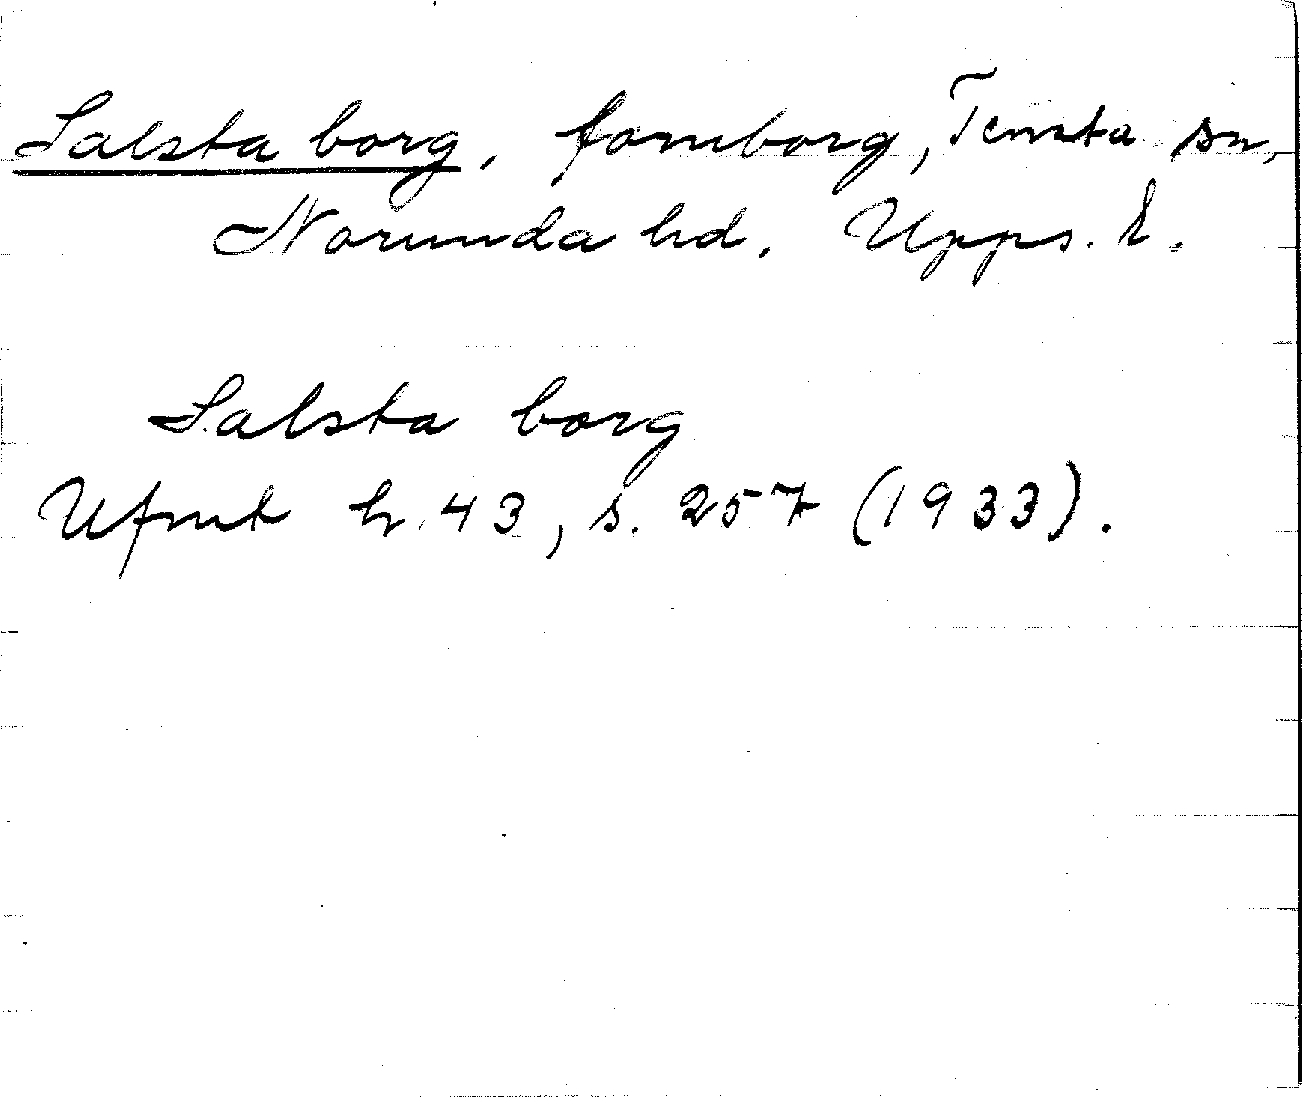 Salsta borg, fornborg, Tensta sn,
Norunda hd. Upps. l.
Salsta borg
Ufmt h. 43, s. 257 (1933).